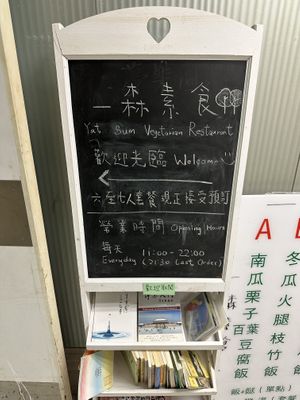 一森素食
Yat Sum Vegetarian Restaurant
歡迎光臨 Welcome
六至七人套餐現正接受預訂
營業時間 Opening Hours
每天 11:00 - 22:00
Everyday (21:30 Last Order)
歡迎取閱
A
南瓜栗子葉百豆腐飯
冬瓜火腿枝竹飯
飯+飯(單點)